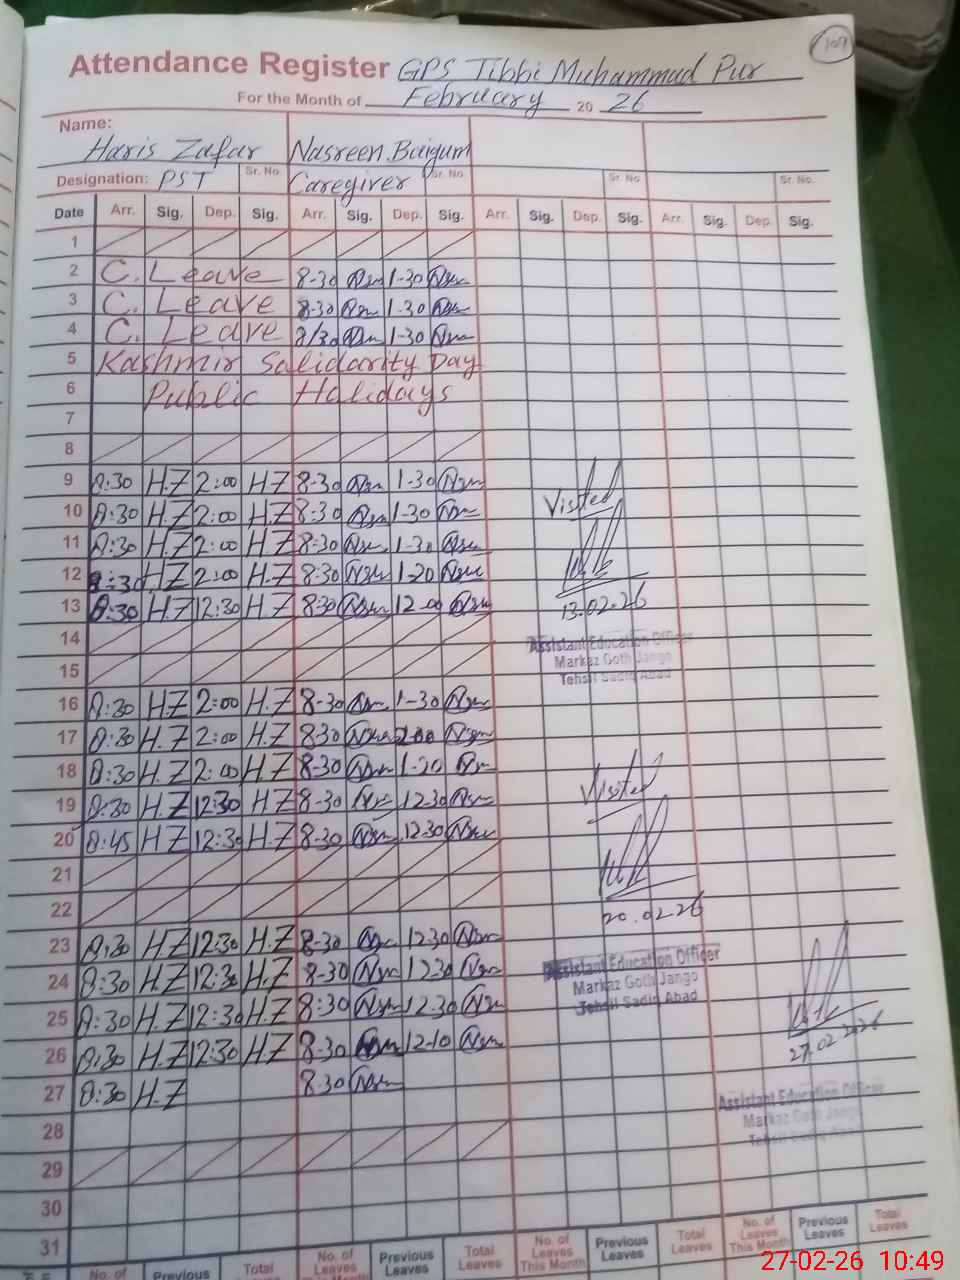 107
Attendance Register GPS Tibbi Muhammad Pur
For the Month of February 20 26
Name:
Haris Zafar Nasreen Baigum
Designation: PST Sr. No. Caregiver Sr. No. Sr. No. Sr. No.
Date Arr. Sig. Dep. Sig. Arr. Sig. Dep. Sig. Arr. Sig. Dep. Sig. Arr. Sig. Dep. Sig.
1
2 C. Leave 8-30 1-30
3 C. Leave 8-30 1-30
4 C. Leave 8/30 1-30
5 Kashmir Salidarity Day
6 Public Halidays
7
8
9 8:30 H.Z 2:00 H.Z 8-30 1-30
10 8:30 H.Z 2:00 H.Z 8-30 1-30
Visited
11 8:30 H.Z 2:00 H.Z 8-30 1-30
12 8:30 H.Z 2:00 H.Z 8-30 1-20
13 8:30 H.Z 12:30 H.Z 8-30 12-00
13.02.26
14
Assistant Education Officer
Markaz Goth Jango
15
Tehsil Sadiq Abad
16 8:30 H.Z 2:00 H.Z 8-30 1-30
17 8:30 H.Z 2:00 H.Z 8-30 2-00
18 8:30 H.Z 2:00 H.Z 8-30 1-20
Visited
19 8:30 H.Z 12:30 H.Z 8-30 12-30
20 8:45 H.Z 12:30 H.Z 8-30 12-30
21
22
20.02.26
23 8:30 H.Z 12:30 H.Z 8-30 12-30
Assistant Education Officer
24 8:30 H.Z 12:30 H.Z 8-30 1230
Markaz Goth Jango
Tehsil Sadiq Abad
25 8:30 H.Z 12:30 H.Z 8:30 12-30
26 8:30 H.Z 12:30 H.Z 8-30 12-10
27.02.2026
27 8:30 H.Z 8-30
Assistant Education Officer
Markaz Goth Jango
Tehsil Sadiq Abad
28
29
30
31
No. of Total No. of Leaves This Month Previous Leaves Total Leaves No. of Leaves This Month Previous Leaves Total Leaves No. of Leaves This Month Previous Leaves Total Leaves
27-02-26 10:49